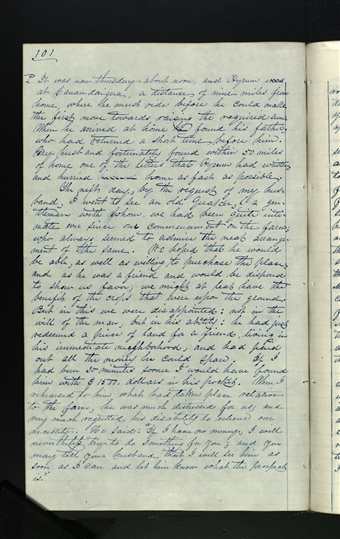 101
P It was now thursday about noon, and Hyrum was,
at Canandaigua, a distance of nine miles from
home, where he must ride before he could make
the first move towards raising the required sum
When he arrived at home he found his father,
who had returned a short time before him.
My husband fortunately found within 50 miles
of home one of the letters that Hyrum had written
and hurried home as fast as possible.
The next day, by the request of my hus-
band, I went to see an old Quaker, a gen-
tleman with whom, we had been quite inti-
mate ever since our commencement on the farm,
who always seemed to admire the neat arrange-
ment of the same. We hoped that he would
be able, as well as willing to purchase the place
and as he was a friend and would be disposed
to show us favor, we might at least have the
benefit of the crops that were upon the ground.
But in this we were disappointed: not in the
will of the man, but in his ability: he had just
redeemed a piece of land for a friend, living in
his immediate neighborhood, and had paid
out all the money he could spare. If I
had been 30 minutes sooner I would have found
him with $1500. dollars in his pocket. When I
rehearsed to him what had taken place relative
to the farm, he was much distressed for us; and
very much regretted, his disability to relieve our
necessity. He said: "If I have no money, I will
nevertheless try to do something for you; and you
may tell your husband, that I will see him as
soon, as I can and let him know what the prospect
is."